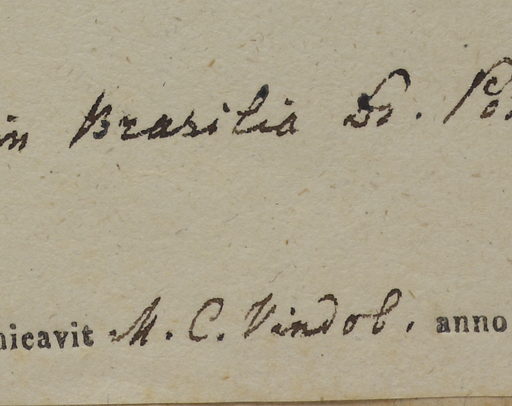 in Brasilia Dr. Po
nicavit M. C. Vindob. anno